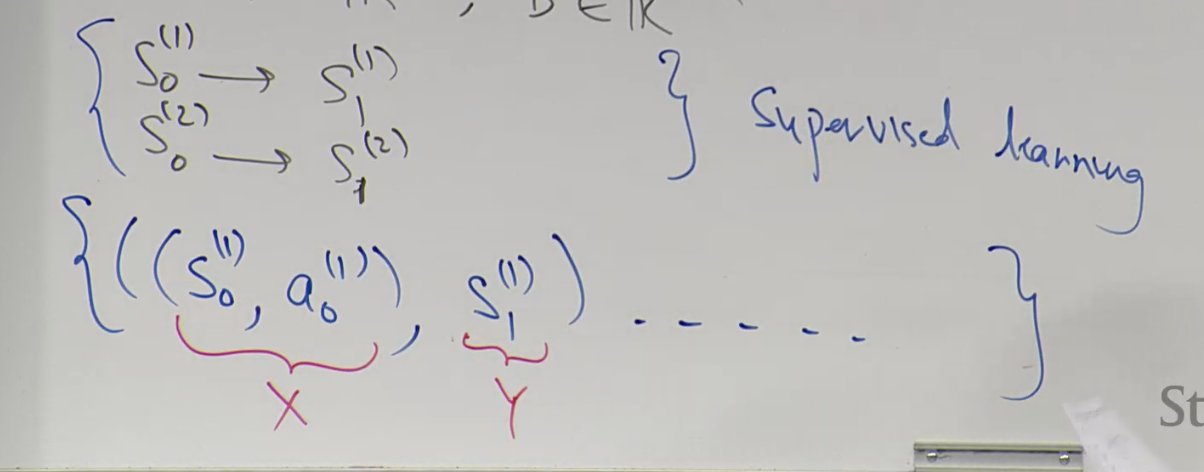 , B ∈ ℝ
{ S₀⁽¹⁾ → S₁⁽¹⁾
S₀⁽²⁾ → S₁⁽²⁾ } Supervised learning
{ ((S₀⁽¹⁾, a₀⁽¹⁾), S₁⁽¹⁾) - - - - - }
X Y
St